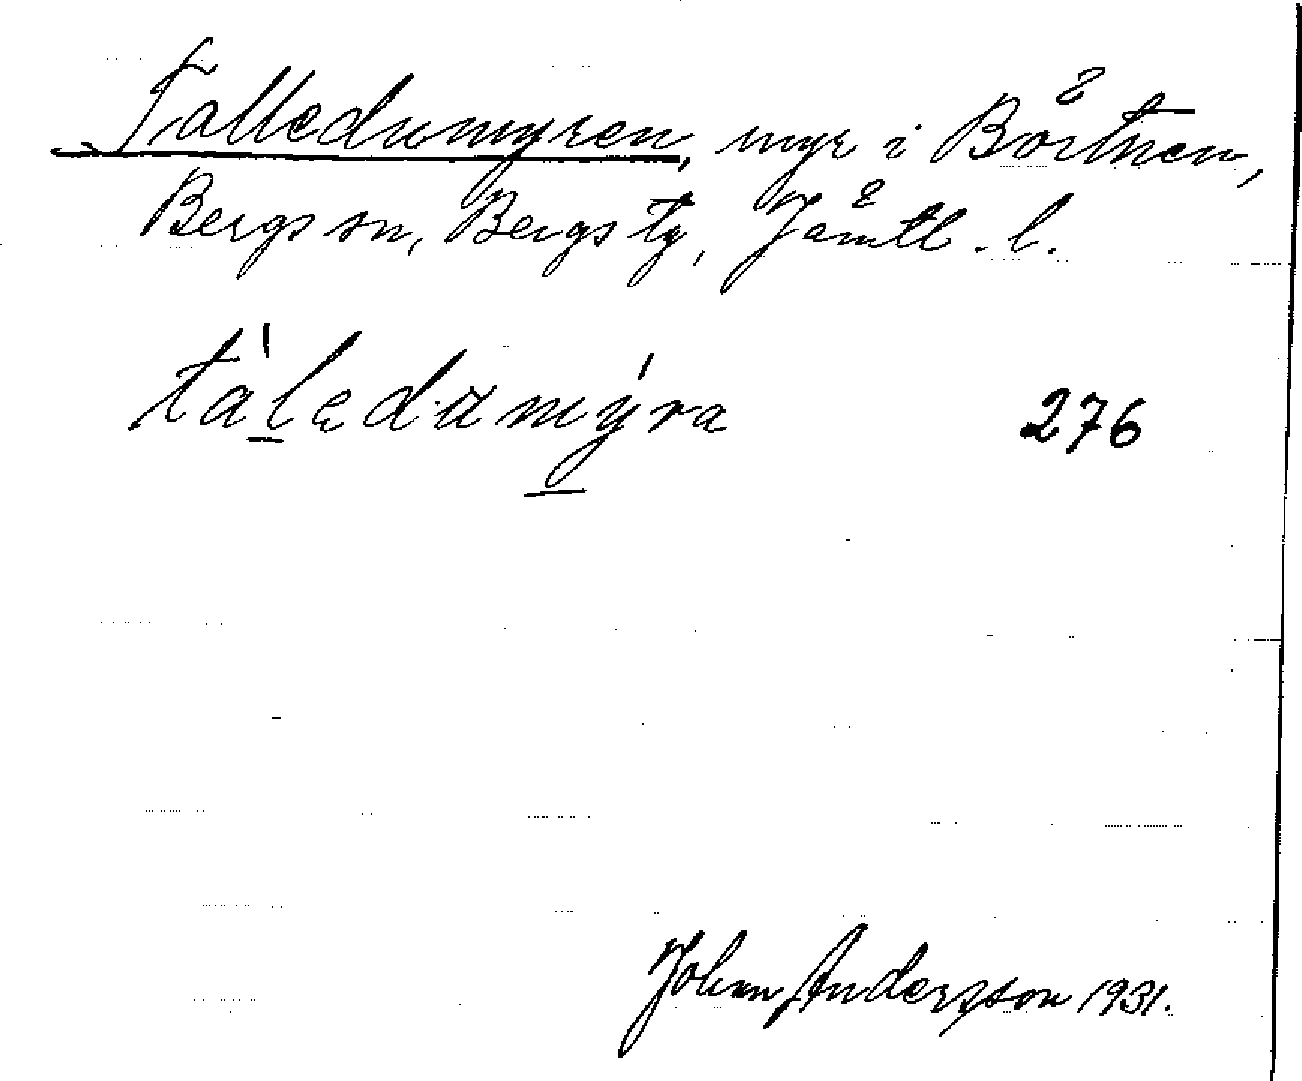 Talledumyren, myr i Börtnen,
Bergs sn, Bergs tg, Jämtl. l.
tàlędumýra 276
Johan Andersson 1931.